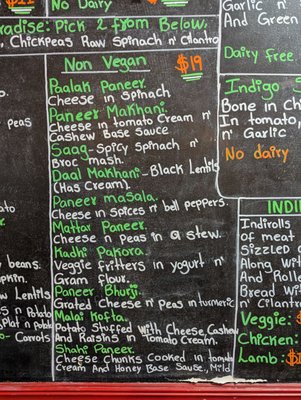 $11
No Dairy
aradise: Pick 2 from Below,
, Chickpeas Raw Spinach n' Cilantro
peas
or beans.
pkin.
w Lentils
s n Potato
plat n potato
- Carrots
Non Vegan $19
Paalak Paneer.
Cheese in spinach
Paneer Makhani.
Cheese in tomato Cream n'
Cashew Base Sauce
Saag-Spicy Spinach n'
Broc mash.
Daal Makhani-Black Lentils
(Has Cream).
Paneer masala.
Cheese in spices n' bell peppers.
Mattar Paneer.
Cheese n peas in a stew.
Kadhi Pakora.
Veggie fritters in yogurt n'
Gram flour.
Paneer Bhurji.
Grated Cheese n' Peas in turmeric
Malai Kofta.
Potato Stuffed with Cheese, Cashew
And Raisins in tomato Cream.
Shahi Paneer.
Cheese Chunks Cooked in tomato
Cream And Honey Base Sauce, Mild
Garlic n'
And Green
Dairy free
Indigo S
Bone in Ch
In tomato,
n' Garlic
No dairy
INDI
Indirolls
of meat
Sizzled o
Along Wit
And Rolle
Bread Wit
n' Cilantr
Veggie: $
Chicken:
Lamb: $1